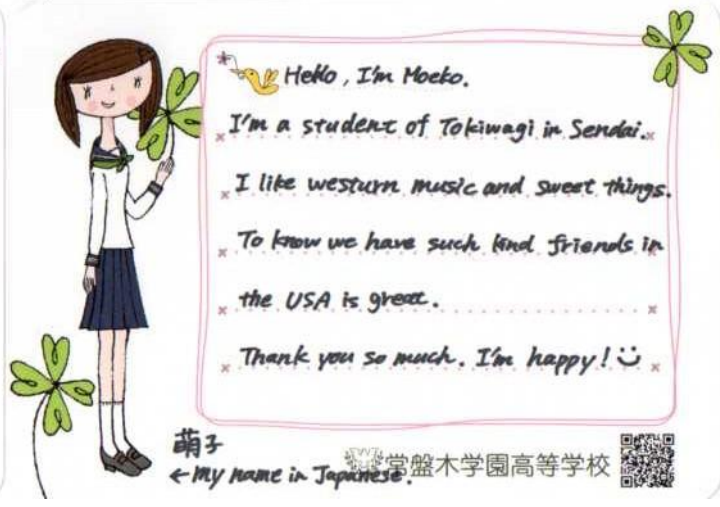 Hello, I'm Moeko.
I'm a student of Tokiwagi in Sendai.
I like westurn music and sweet things.
To know we have such kind friends in
the USA is great.
Thank you so much. I'm happy!
萌子
←My name in Japanese.
常盤木学園高等学校